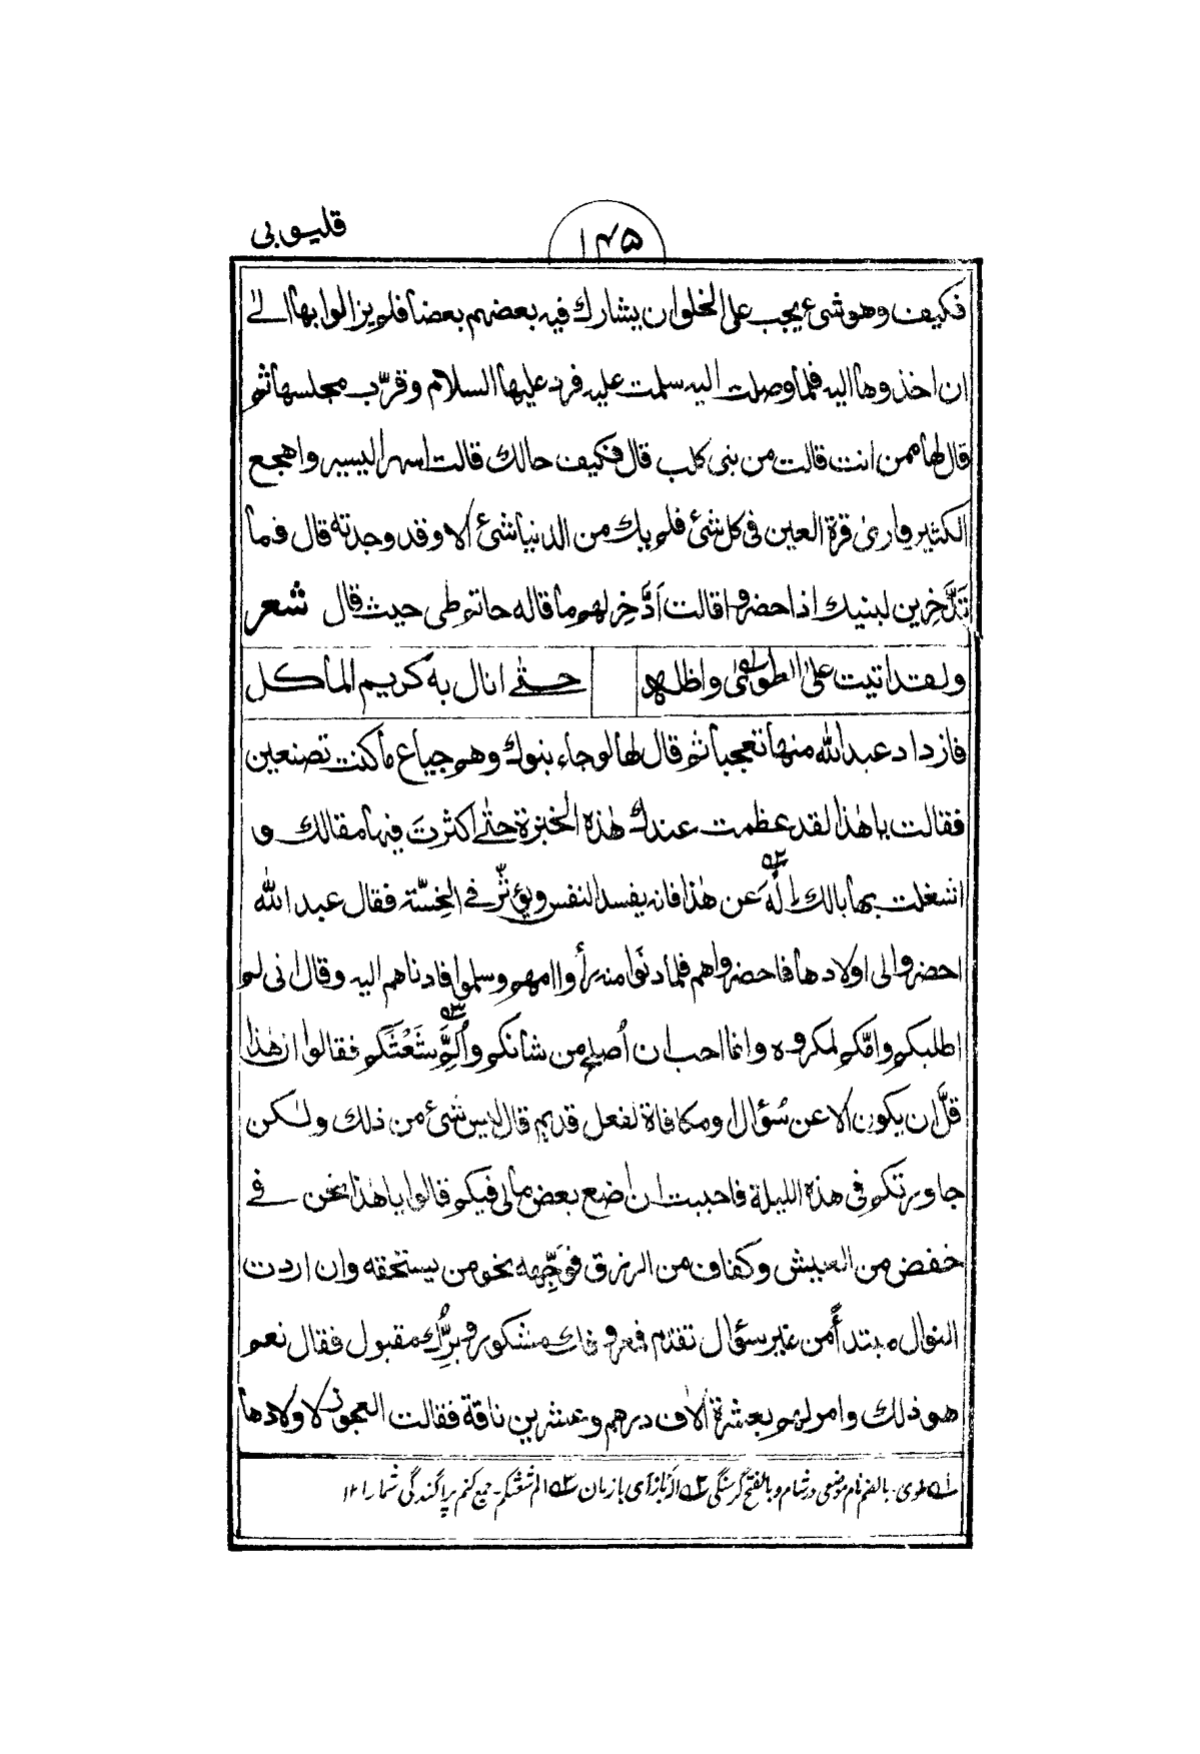 قليوبى
١٤٥
فكيف وهو شئ يجب على الخلق ان يشارك فيه بعضهم بعضا فلم يزالوا بها الى
ان اخذوها اليه فلما وصلت اليه سلمت عليه فرد عليها السلام وقرّب مجلسها ثم
قال لها ممن انت قالت من بنى كلب قال فكيف حالك قالت اسهر اليسير واهجع
الكثير وارى قرة العين فى كل شئ فلم يك من الدنيا شئ الا وقد وجدته قال فما
تَدَّخِرين لبنيك اذا حضروا قالت اَدَّخِر لهم ما قاله حاتم طى حيث قال شعر
ولقد اتيت على الطوى واظله حتى انال به كريم المأكل
فازداد عبد الله منها تعجبا ثم قال لها لو جاء بنوك وهم جياع ما كنت تصنعين
فقالت يا هٰذا لقد عظمت عندك هٰذه الخبزة حتى اكثرتَ فيها مقالك و
اشغلت بها بالك اِلْهَ عن هٰذا فانه يفسد النفس ويؤثّر فى الخِسّة فقال عبد الله
احضروا لى اولادها فاحضروهم فلما دنَوا منه رأوا امهم وسلموا فادناهم اليه وقال انى لم
اطلبكم وامّكم لمكروه وانما احب ان اُصلح من شانكم واُلِمَّ شَعْثَكم فقالوا ان هٰذا
قلَّ ان يكون الا عن سُؤال او مكافاة لفعل قديم قال ليس شئ من ذلك ولكن
جاورتكم فى هذه الليلة فاحببت ان اضع بعض مالى فيكم قالوا يا هٰذا نحن فى
خفض من العيش وكفاف من الرزق فوَجِّهه نحو من يستحقه وان اردت
النوال مبتدأً من غير سؤال تقدّم فمعروفك مشكور وبِرُّك مقبول فقال نعم
هو ذلك وامر لهم بعشرة اٰلاف درهم وعشرين ناقة فقالت العجوز لاولادها
له طوى۔ بالضم نام موضعى در شام و بالفتح گرسنگى ٢ه اى بازمان ٣ه الم شعثكم۔ جمع كنم پراگندگى شما را ١٢